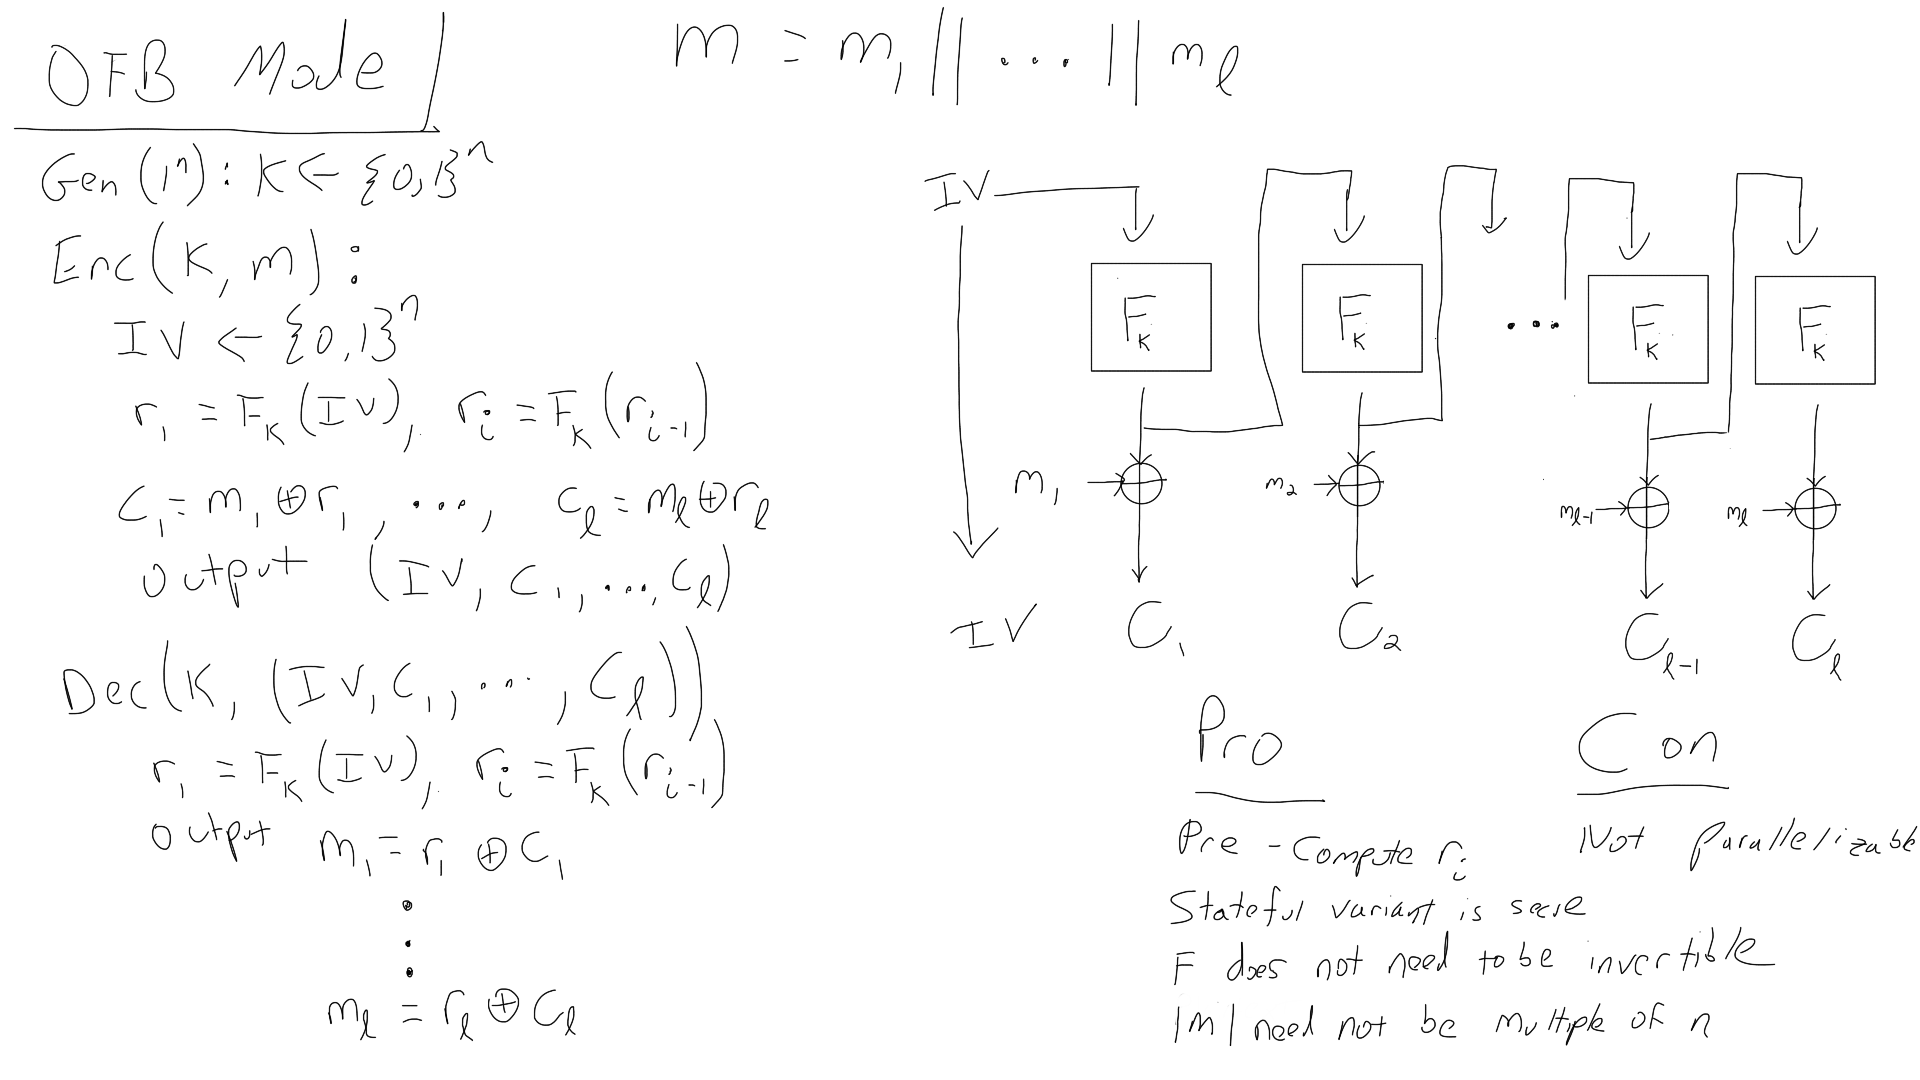 OFB Mode
m = m₁ || ... || m_ℓ
Gen(1ⁿ): K ← {0,1}ⁿ
Enc(K, m):
IV ← {0,1}ⁿ
r₁ = F_K(IV), r_i = F_K(r_{i-1})
C₁ = m₁ ⊕ r₁, ..., C_ℓ = m_ℓ ⊕ r_ℓ
output (IV, C₁, ..., C_ℓ)
Dec(K, (IV, C₁, ..., C_ℓ))
r₁ = F_K(IV), r_i = F_K(r_{i-1})
output m₁ = r₁ ⊕ C₁
⋮
m_ℓ = r_ℓ ⊕ C_ℓ
IV
F_K F_K ... F_K F_K
m₁ m₂ m_{ℓ-1} m_ℓ
IV C₁ C₂ C_{ℓ-1} C_ℓ
Pro
Pre-Compute r_i
Stateful variant is secure
F does not need to be invertible
|m| need not be multiple of n
Con
Not parallelizable